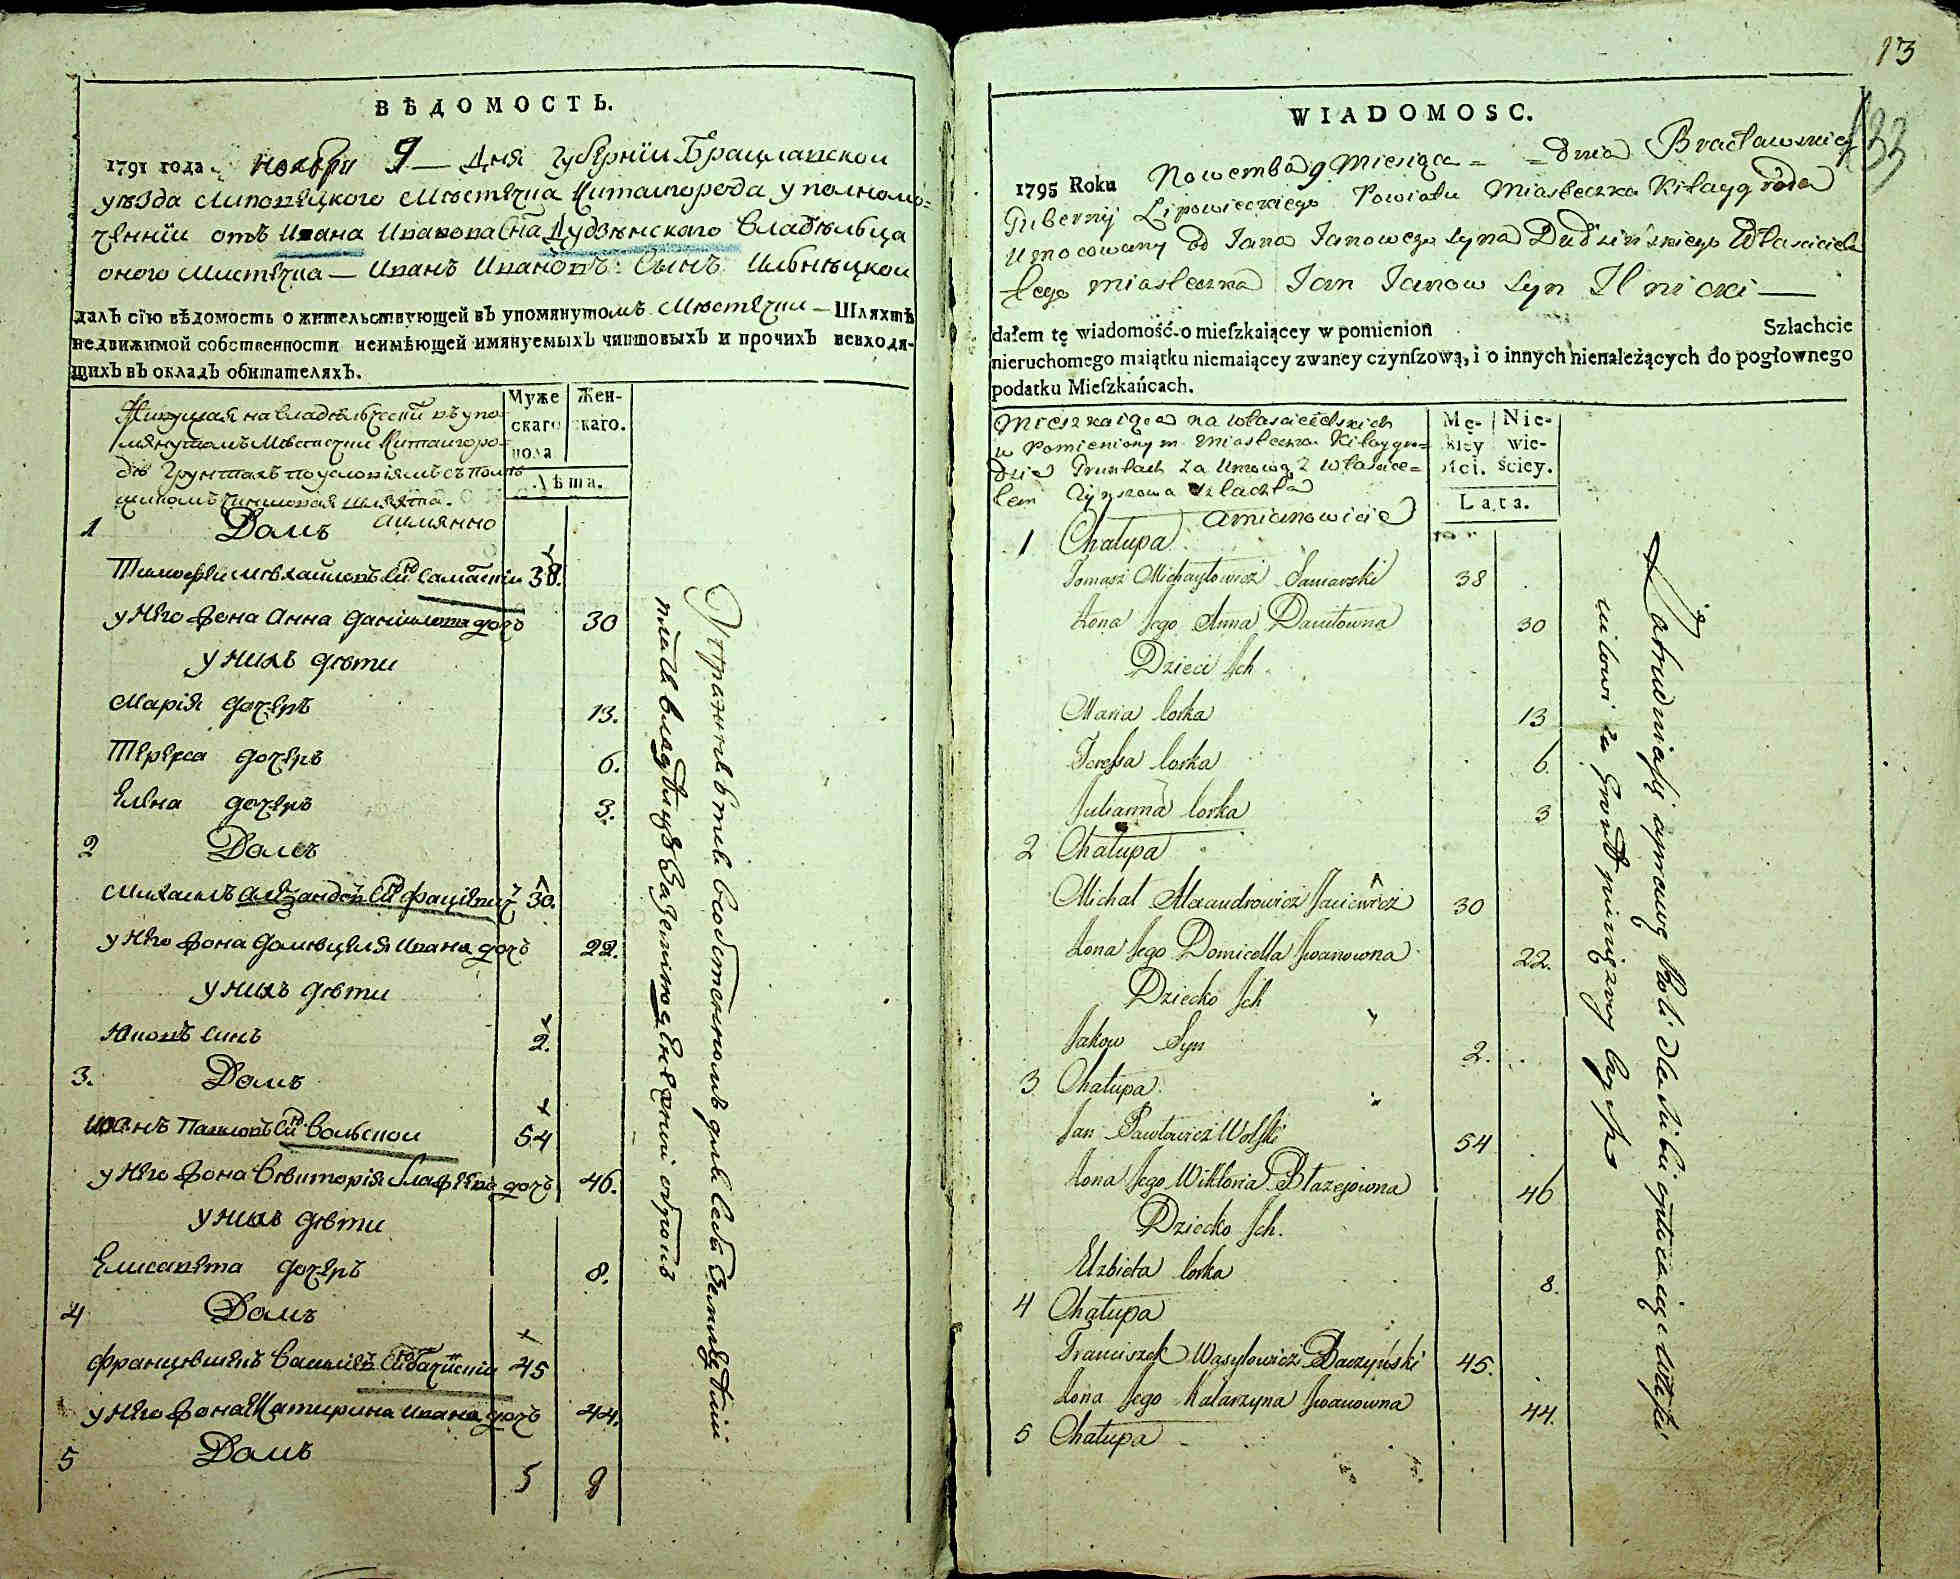 ВѢДОМОСТЬ.
1791 года ноября 9 — Дня губернïи Брацлавской
уѣзда Липовецкого Мѣстечка Китайгорода уполномо=
ченнïи отъ Ивана Иванова Сна Дубзѣнскаго владѣльца
оного Мистечка — Иванъ Ивановъ Сынъ Ильнѣцкои
далЪ сїю вѣдомость о жительствующей вЪ упомянутомъ Мѣстечки — ШляхтѢ
недвижимой собственности неимѣющей имянуемыхЪ чиншовыхЪ и прочихЪ невходя-
щихЪ вЪ окладЪ обитателяхЪ.
Муже
скаго
пола
Жен-
скаго.
Лѣта.
Живущая на владѣлческïй въ упо-
мянутомъ Мѣстечки Китаигоро-
дѣ грунтахъ по условïямъ съ помѣ
щикомъ чиншовая шляхта.
аимянно
1 Домъ
Тимофѣи Мѣхайловъ Снъ Самавскïи 38.
у него Жена Анна Данïилова дочъ 30
у нихъ дѣти
Марïя дочеръ 13.
Тереса дочеръ 6.
Елѣна дочеръ 3.
2 Домъ
Михаилъ Алеѯандовъ Снъ Фацïевичъ 30.
у него Жона Домѣцеля Ивана дочъ 22.
у нихъ дѣти
Яковъ синъ 2.
3. Домъ
Иванъ Павловъ Снъ Вольскои 54
у него Жона Вѣкторïя Блажѣева дочъ 46.
у нихъ дѣти
Елисавѣта дочеръ 8.
4 Домъ
Францѣшекъ Василïевъ Снъ Бачинскïи 45
у него Жона Катирина Ивана дочъ 44.
5 Домъ
5 9
Упражнѣнïе въ собственномъ для себя земледѣлïи
владѣлцу за землю денежнïй оброкъ
13
133
WIADOMOSC.
1795 Roku Nowembra 9 Miesiąca = = dnia Bracławskiey
Gubernij Lipowieckiego Powiatu Miasteczka Kitaygroda
Umocowany od Jana Janowego syna Dudzińskiego Właściciela
tego miasteczka Jan Janow syn Ilnicki —
dałem tę wiadomość o mieſzkaiącey w pomienion Szlachcie
nieruchomego maiątku niemaiącey zwaney czynſzową, i o innych nienależących do pogłownego
podatku Mieſzkańcach.
Mę-
skiey
płci.
Nie-
wie-
ściey.
Lata.
Mieszkaiąca na właścicielskich
w Pomienionym Miasteczku Kitaygro=
dzie Gruntach za Umową z Właścice=
lem Czynszowa szlachta
amianowicie
1 Chałupa
Tomasz Michayłowicz Samawski 38
Żona Jego Anna Daniłowna 30
Dzieci Jch
Maria Corka 13
Teressa Corka 6.
Julianna Corka 3
2 Chałupa
Michał Alexandrowicz Faciewicz 30
Żona Jego Domicella Jwanowna 22.
Dziecko Jch
Jakow Syn 2.
3 Chałupa
Jan Pawłowicz Wolski 54
Żona Jego Wiktoria Błazejowna 46
Dziecko Jch.
Elzbieta Corka 8.
4 Chałupa
Franciszek Wasylowicz Baczyński 45.
Żona Jego Katarzyna Jwanowna 44.
5 Chałupa
Zatrudniaią się uprawą Roli dla siebie opłacaiąc Właści
cielowi za Grunt pieniężny Czynsz